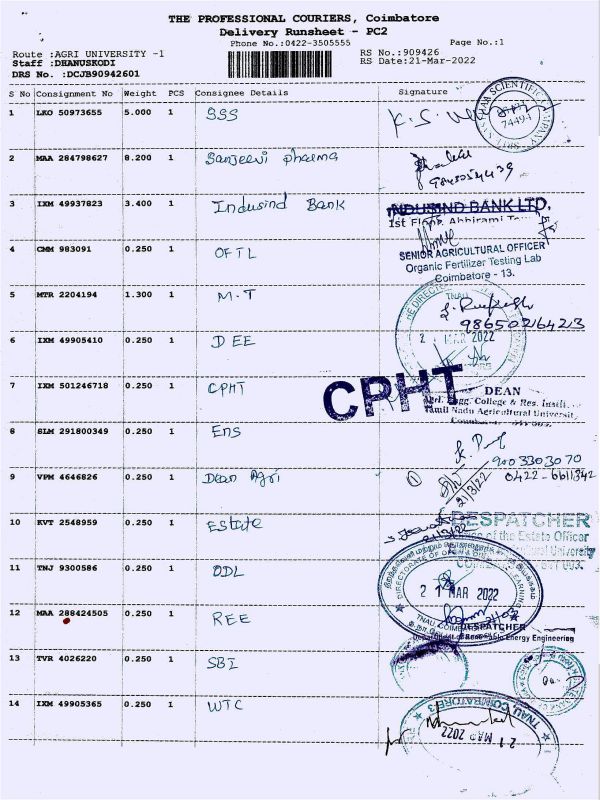 THE PROFESSIONAL COURIERS, Coimbatore
Delivery Runsheet - PC2
Phone No.:0422-3505555
Page No.:1
Route :AGRI UNIVERSITY -1
RS No.:909426
Staff :DHANUSKODI
RS Date:21-Mar-2022
DRS No. :DCJB90942601
S No Consignment No Weight PCS Consignee Details Signature
1 LKO 50973655 5.000 1 SSS
74494
2 MAA 284798627 8.200 1 Sanjeevi pharma
3 IXM 49937823 3.400 1 Indusind Bank
INDUSIND BANK LTD.
1st Floor, Abhirami
4 CMM 983091 0.250 1 OFTL
SENIOR AGRICULTURAL OFFICER
Organic Fertilizer Testing Lab
Coimbatore - 13.
5 MTR 2204194 1.300 1 M.T
TNAU
9865021 6423
6 IXM 49905410 0.250 1 DEE
2 MAR 2022
7 IXM 501246718 0.250 1 CPHT
CPHT
DEAN
Agrl. Engg. College & Res. Instt.
Tamil Nadu Agricultural University
8 SLM 291800349 0.250 1 Ens
9003303070
9 VPM 4646826 0.250 1 Dean Agri
0422-6611342
21/3/22
10 KVT 2548959 0.250 1 Estate
DESPATCHER
of the Estate Officer
11 TNJ 9300586 0.250 1 ODL
DIRECTORATE OF OPEN & DISTANCE LEARNING
21 MAR 2022
12 MAA 288424505 0.250 1 REE
DESPATCHER
Department of Renewable Energy Engineering
13 TVR 4026220 0.250 1 SBI
14 IXM 49905365 0.250 1 WTC
TNAU, COIMBATORE-3
21 MAR 2022